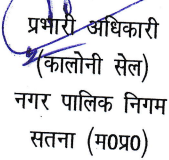 प्रभारी अधिकारी
(कालोनी सेल)
नगर पालिक निगम
सतना (म०प्र०)